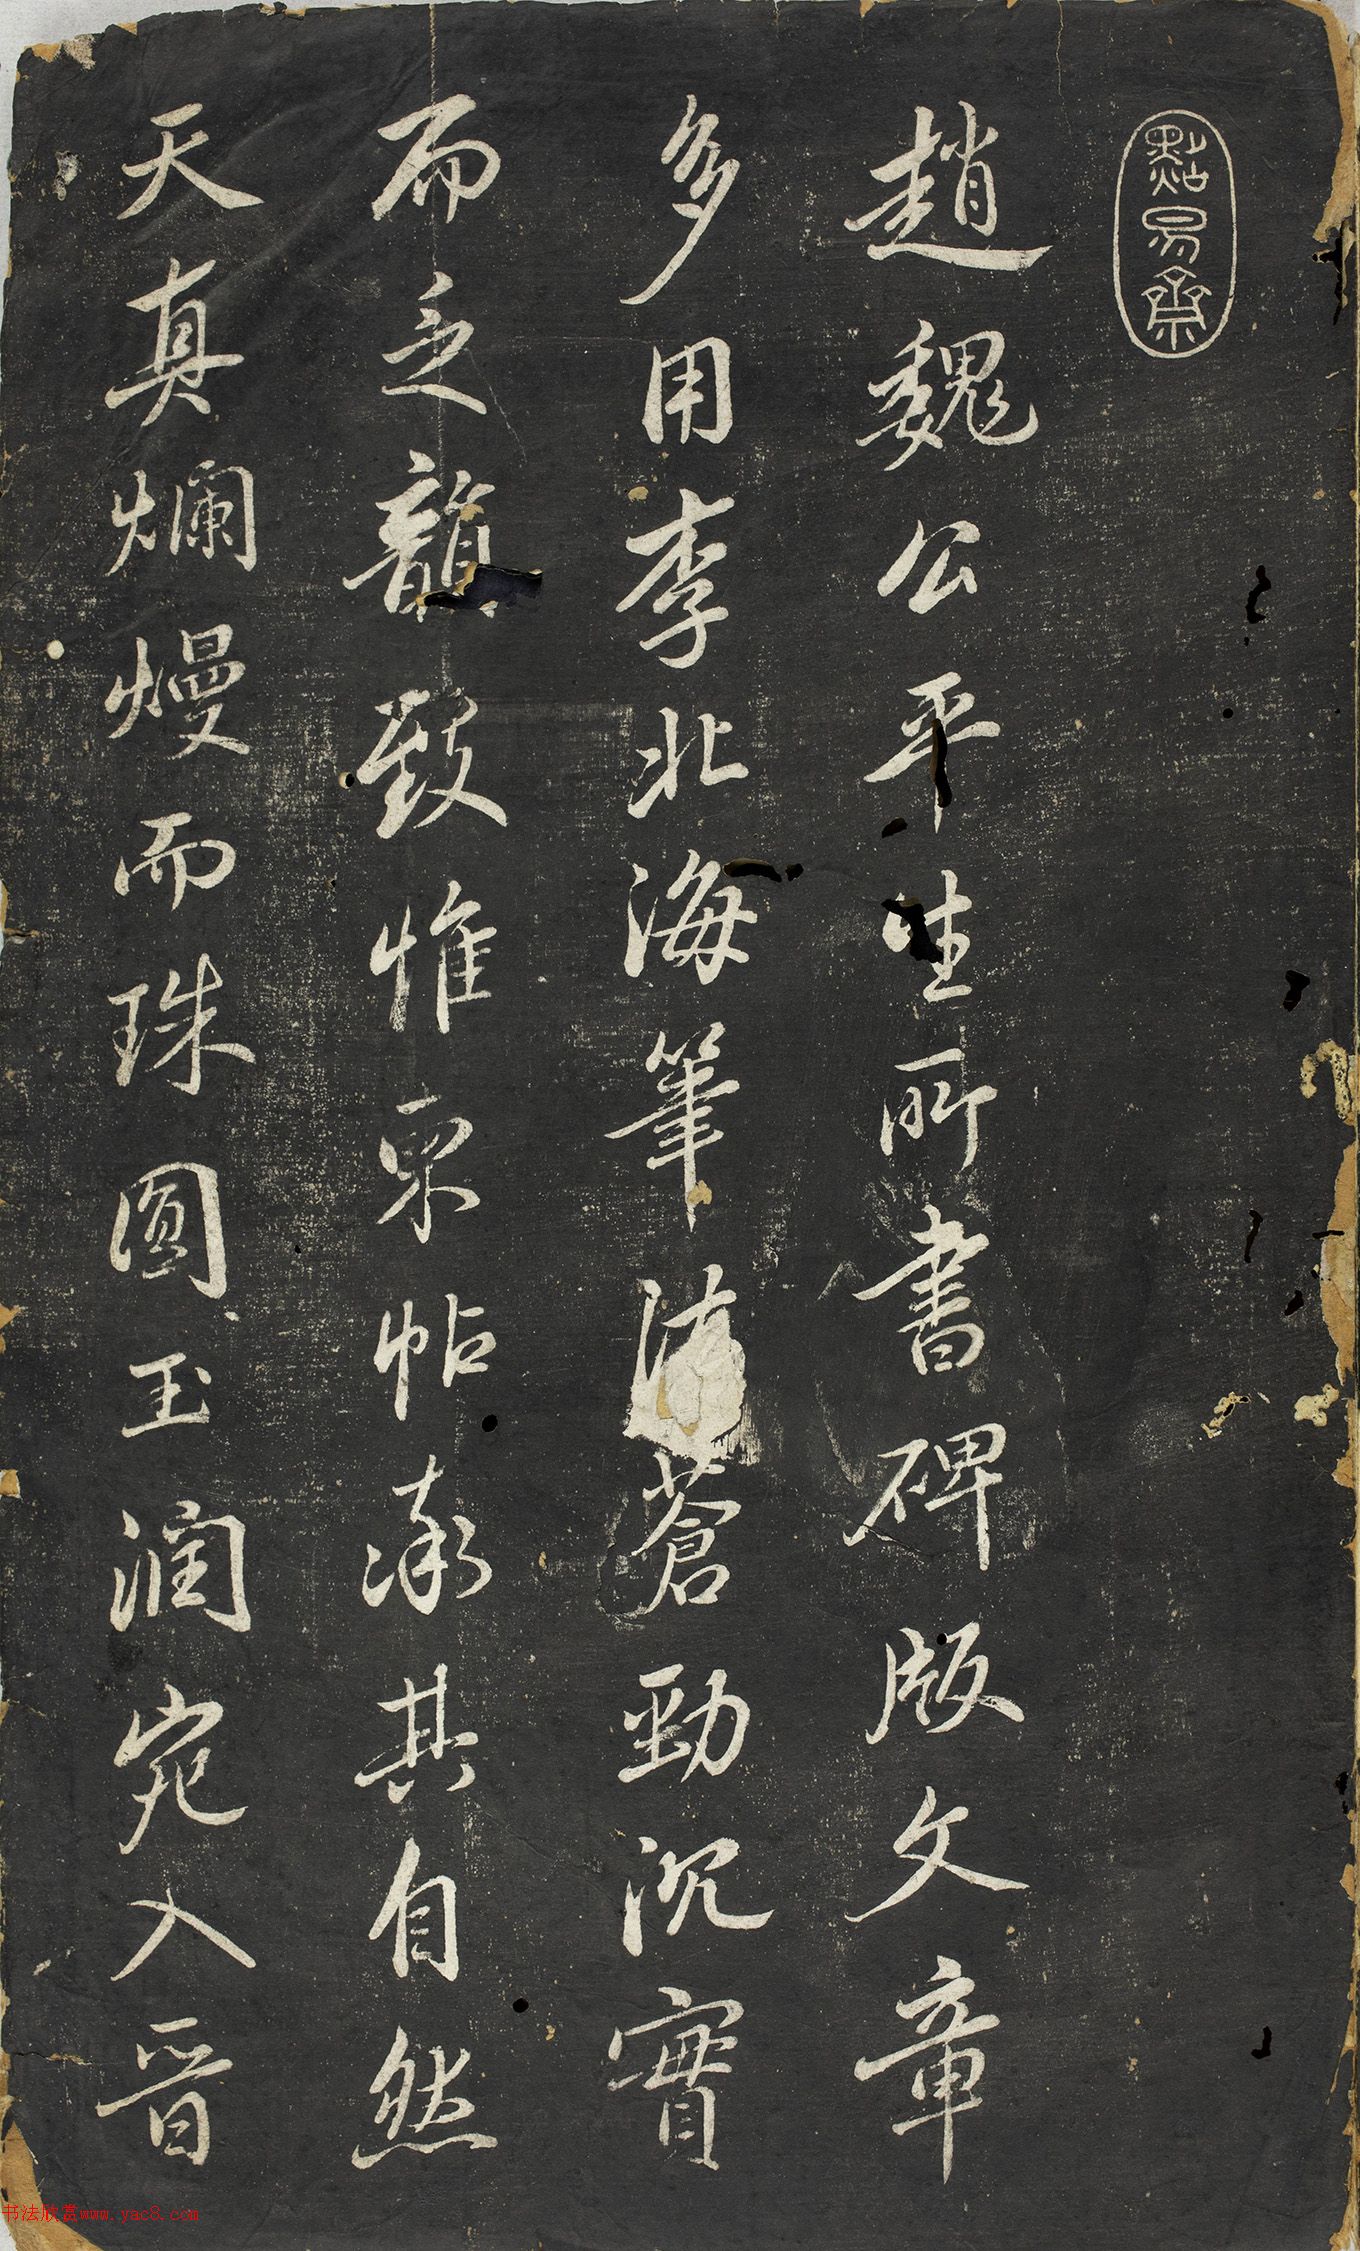 點易齋
趙魏公平生所書碑版文章
多用李北海筆法蒼勁沉實
而乏韻致惟小帖率其自然
天真爛熳而珠圓玉潤宛入晉
书法欣赏www.yac8.com